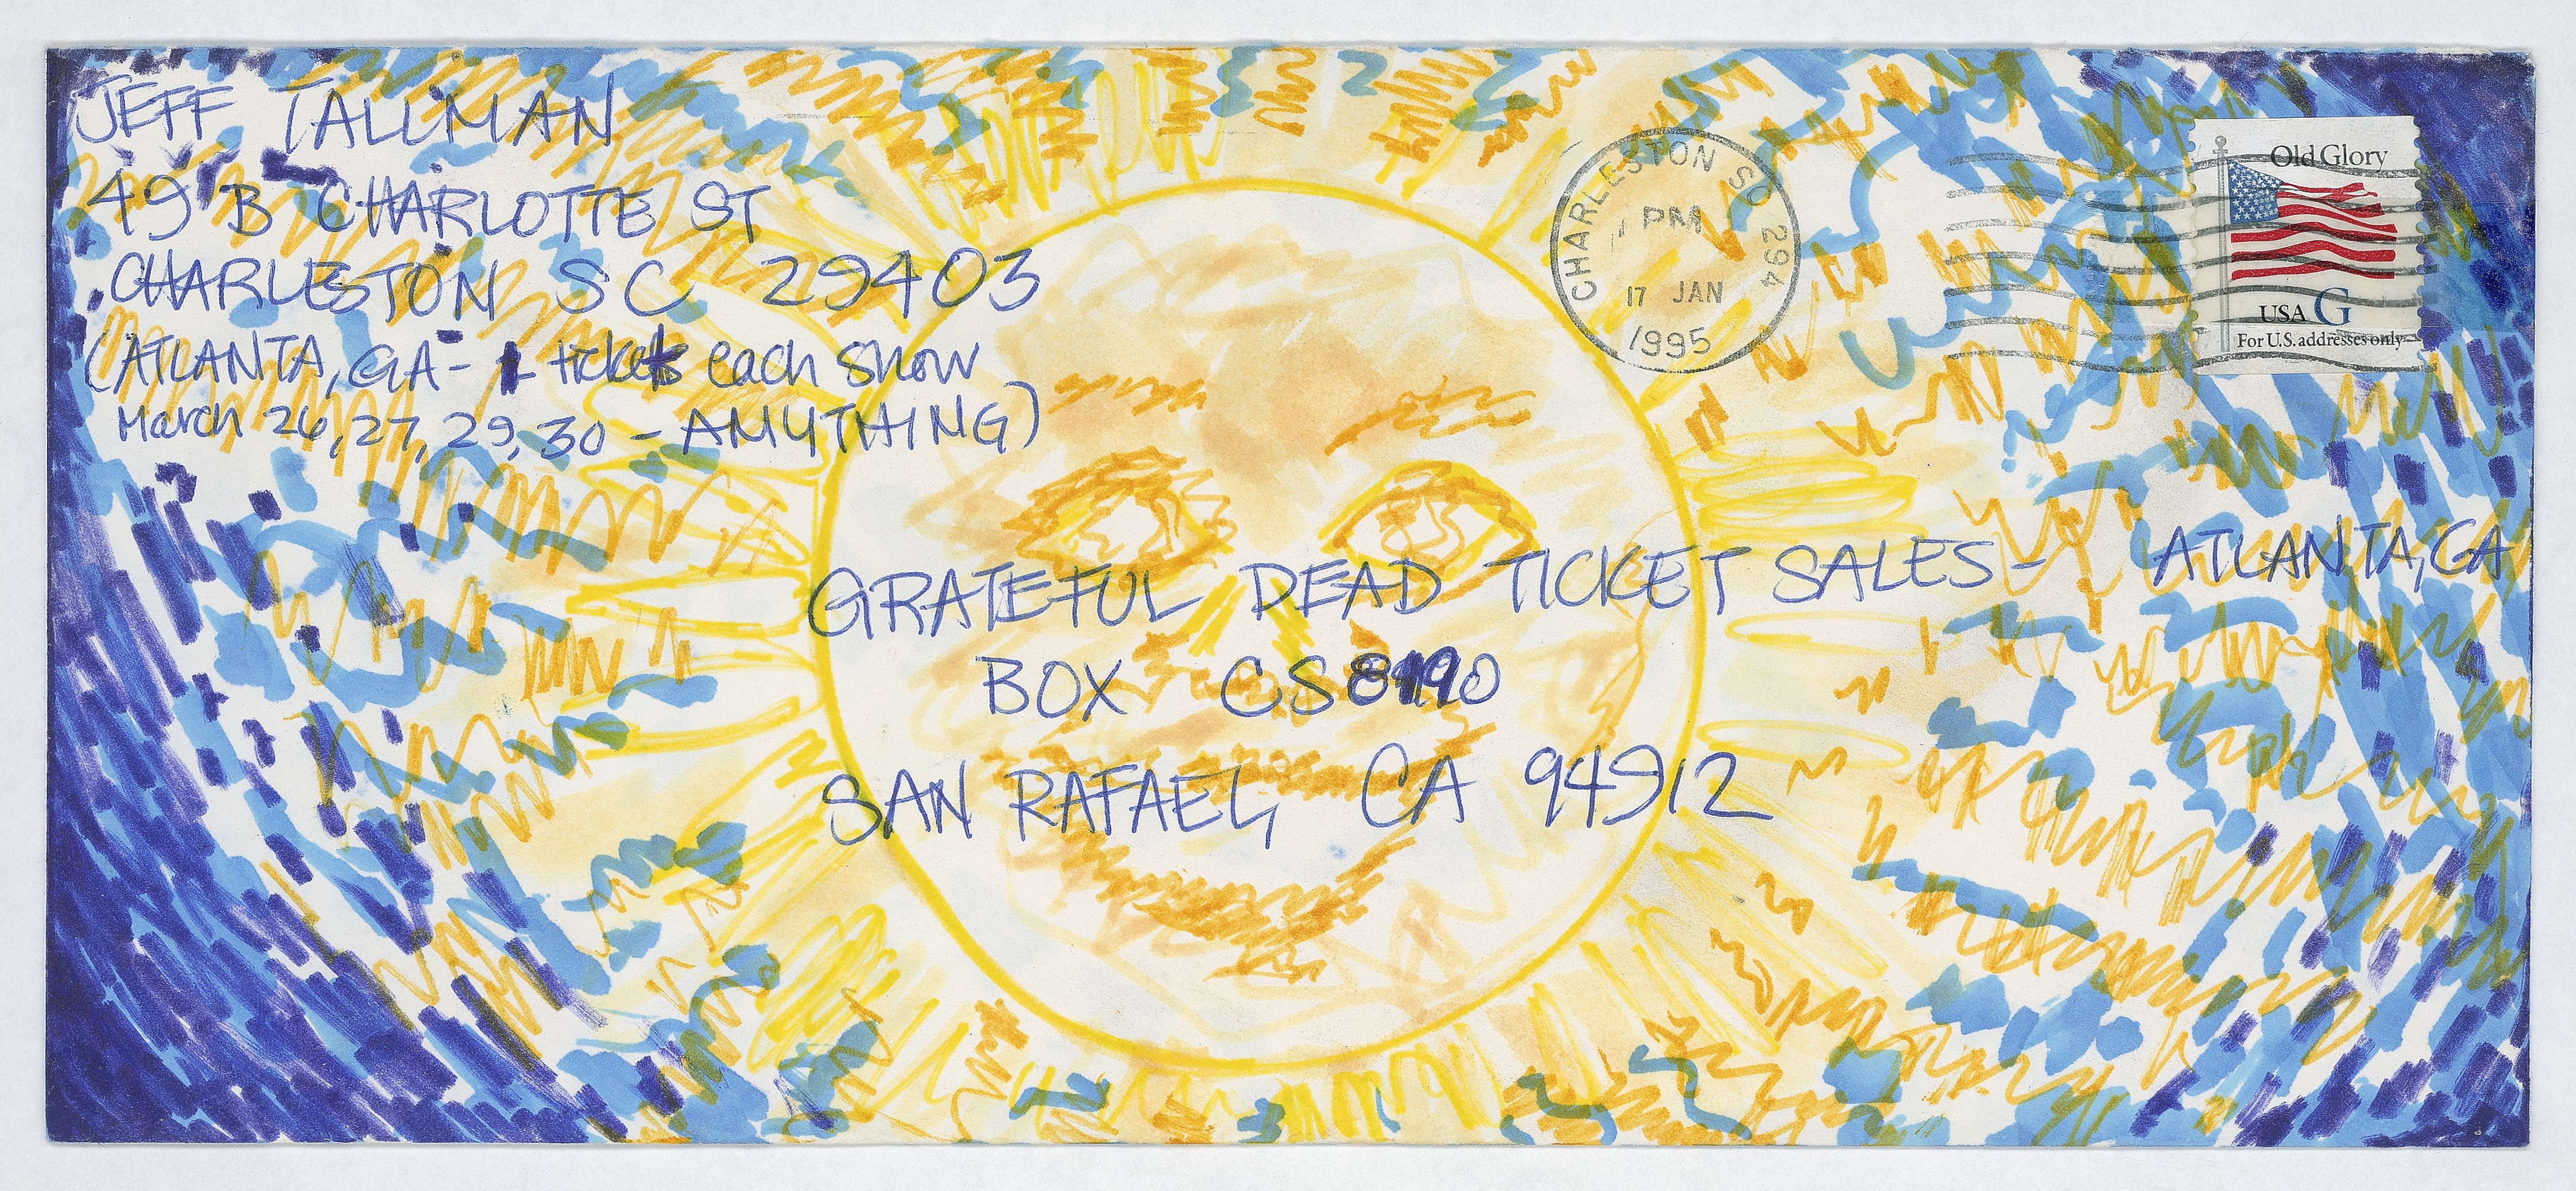 JEFF TALLMAN
49 B CHARLOTTE ST
CHARLESTON SC 29403
(ATLANTA, GA - 1 ticket each show
March 26, 27, 29, 30 - ANYTHING)
CHARLESTON SC 294
PM
17 JAN
1995
Old Glory
USA G
For U.S. addresses only
GRATEFUL DEAD TICKET SALES - ATLANTA, GA
BOX CS 8190
SAN RAFAEL, CA 94912